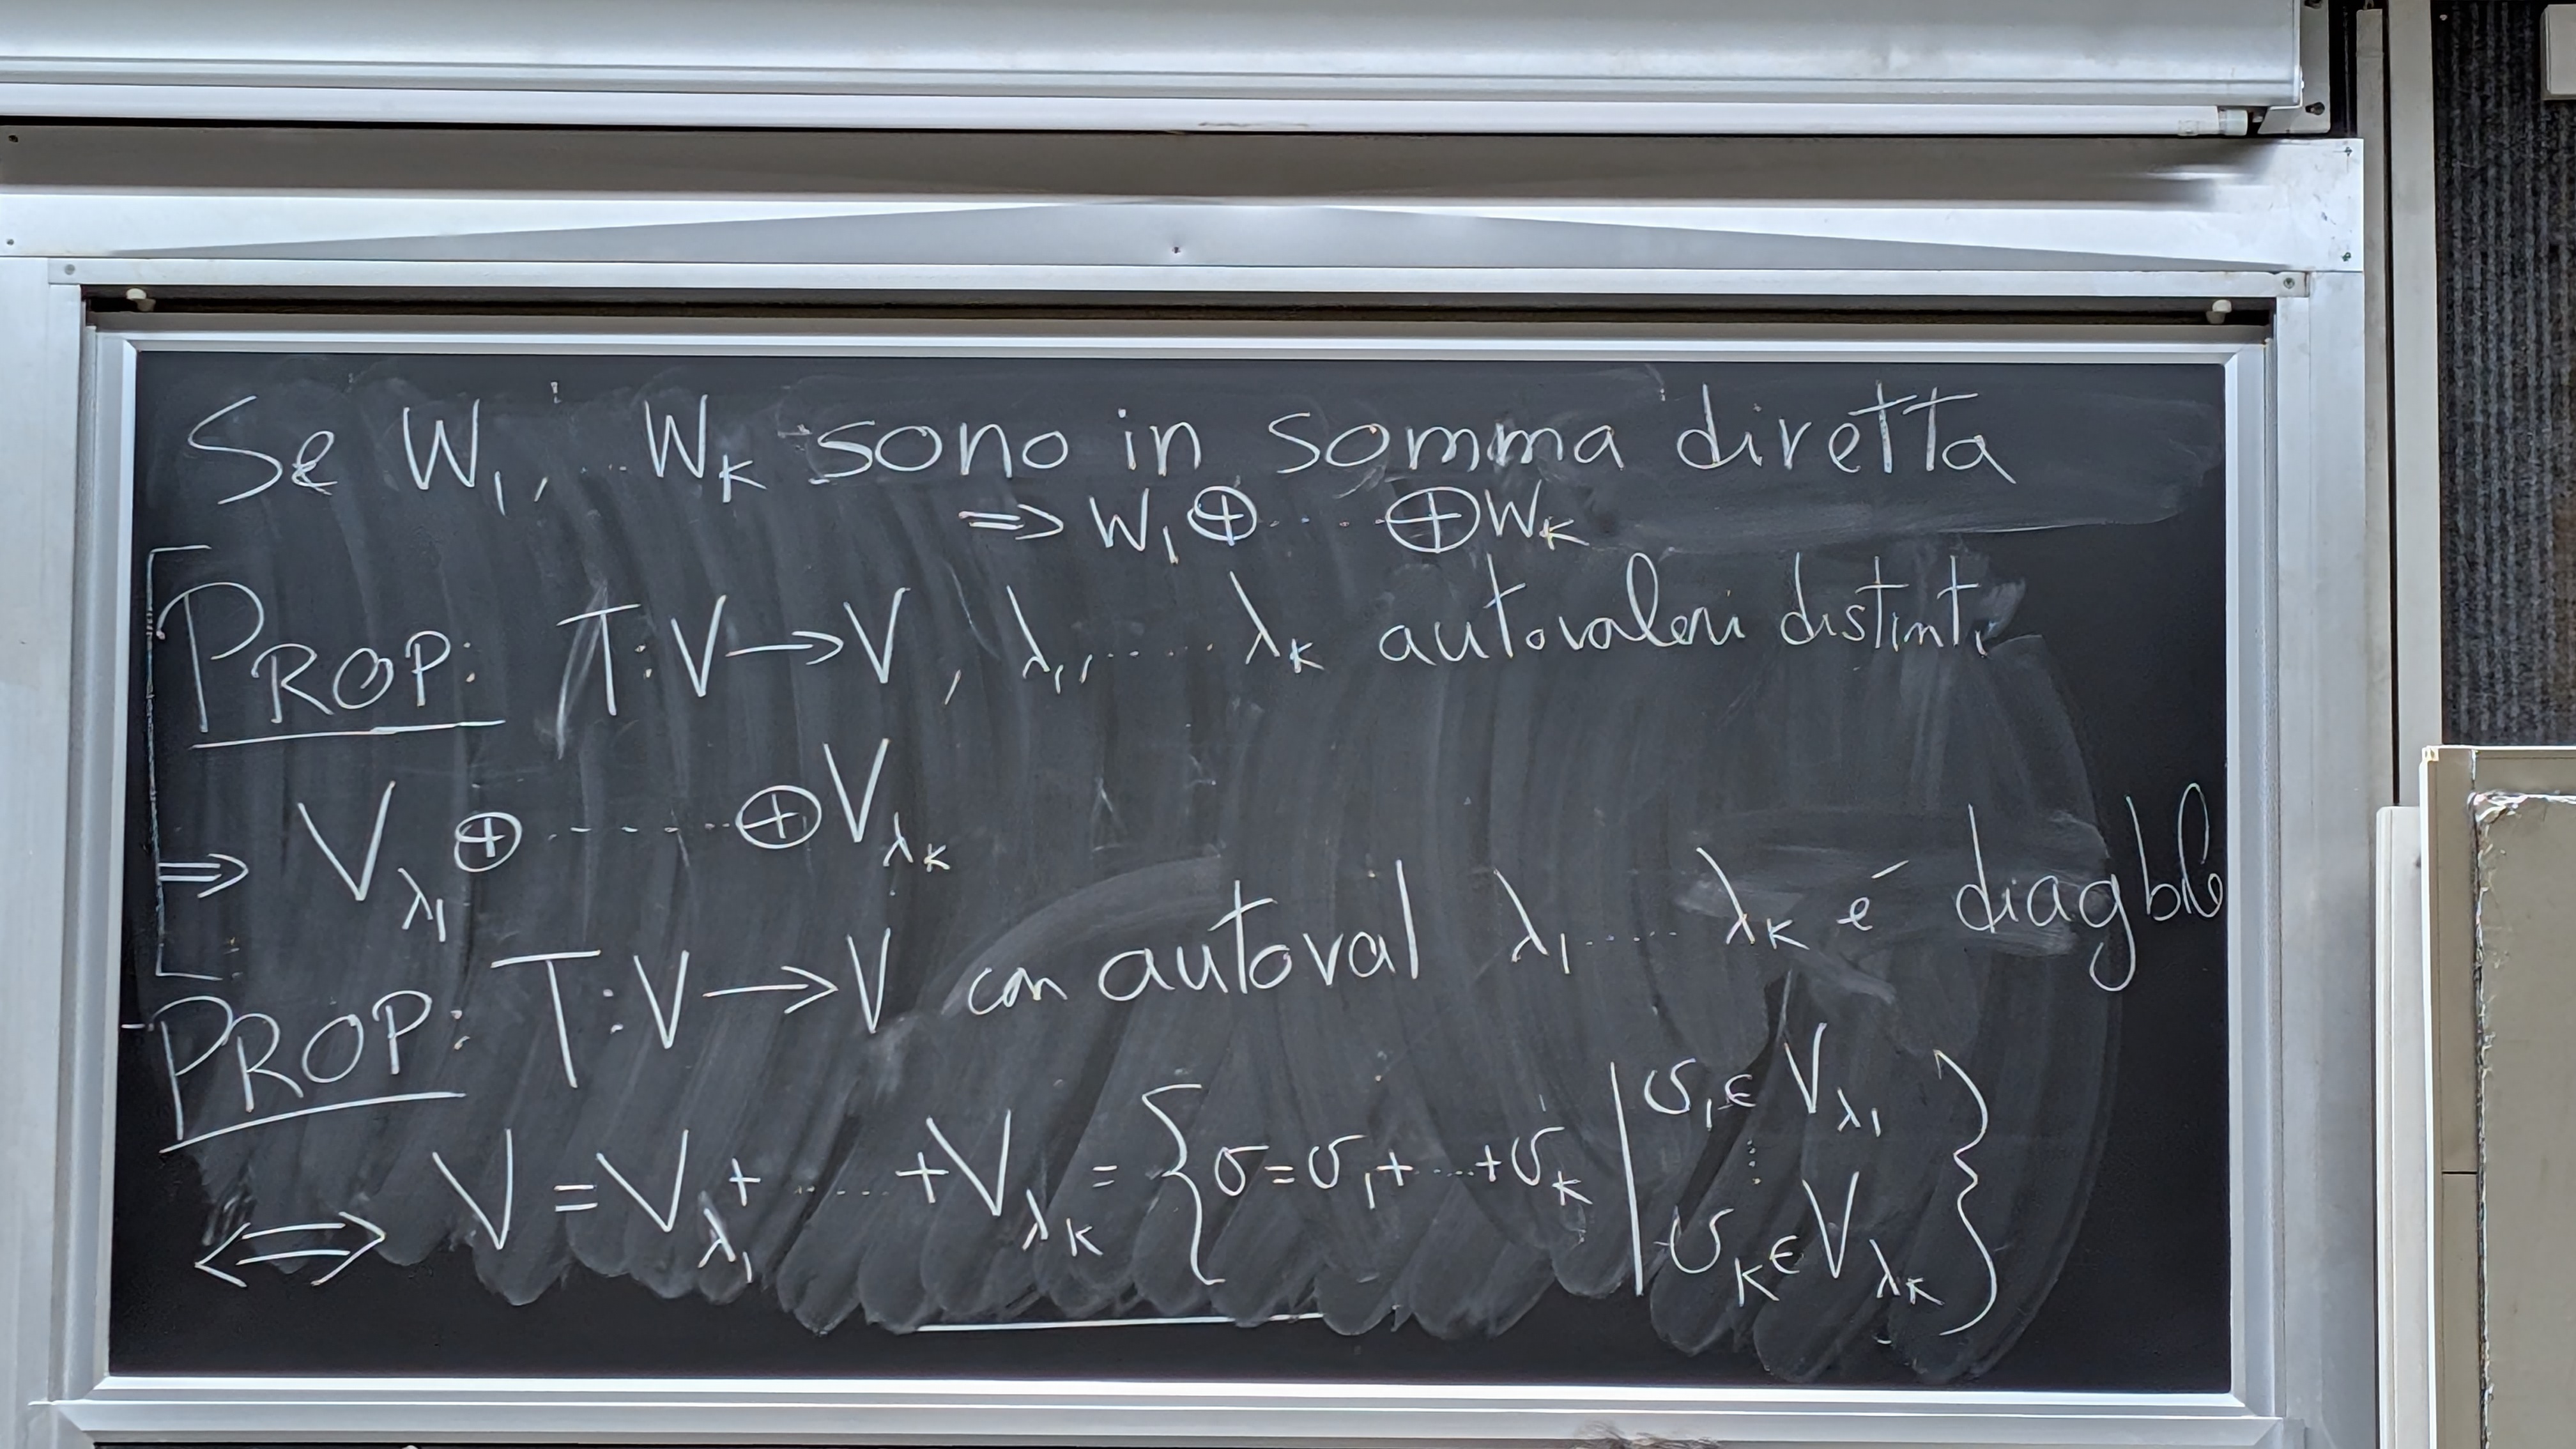 Se W₁, ... W_K sono in somma diretta
⟹ W₁ ⊕ ... ⊕ W_K
PROP: T: V ⟶ V, λ₁, ...... λ_K autovalori distinti
⟹ V_λ₁ ⊕ ------- ⊕ V_λ_K
PROP: T: V ⟶ V con autoval λ₁ ...... λ_K é diagble
⟺ V = V_λ₁ + ..... + V_λ_K = { v = v₁ + ..... + v_K | v₁ ∈ V_λ₁ ⋮ v_K ∈ V_λ_K }